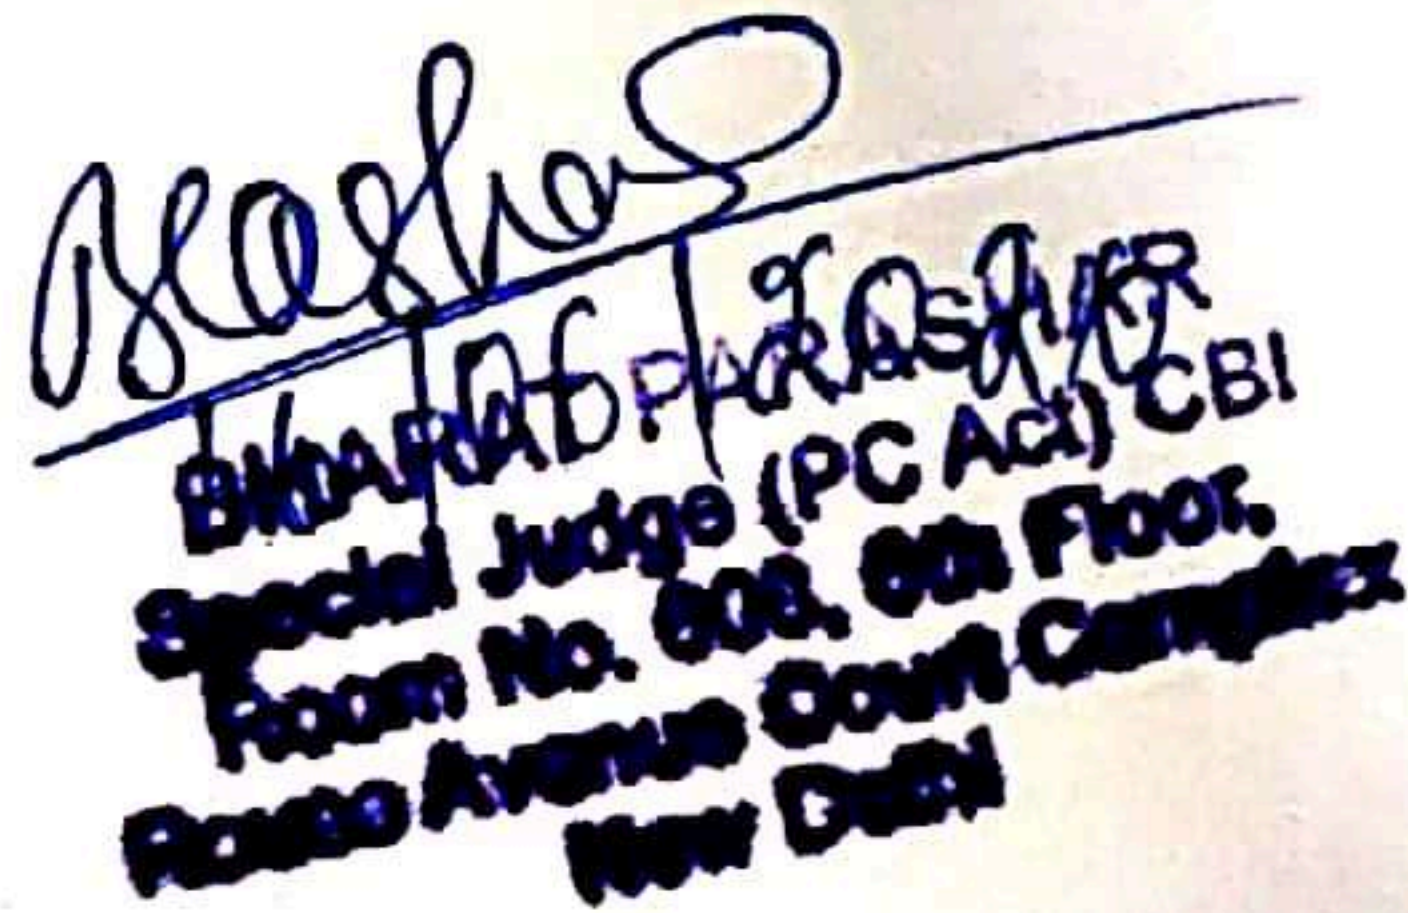 BHARAT PARASHAR
Special Judge (PC Act) CBI
Room No. 608, 6th Floor,
Rouse Avenue Court Complex
New Delhi